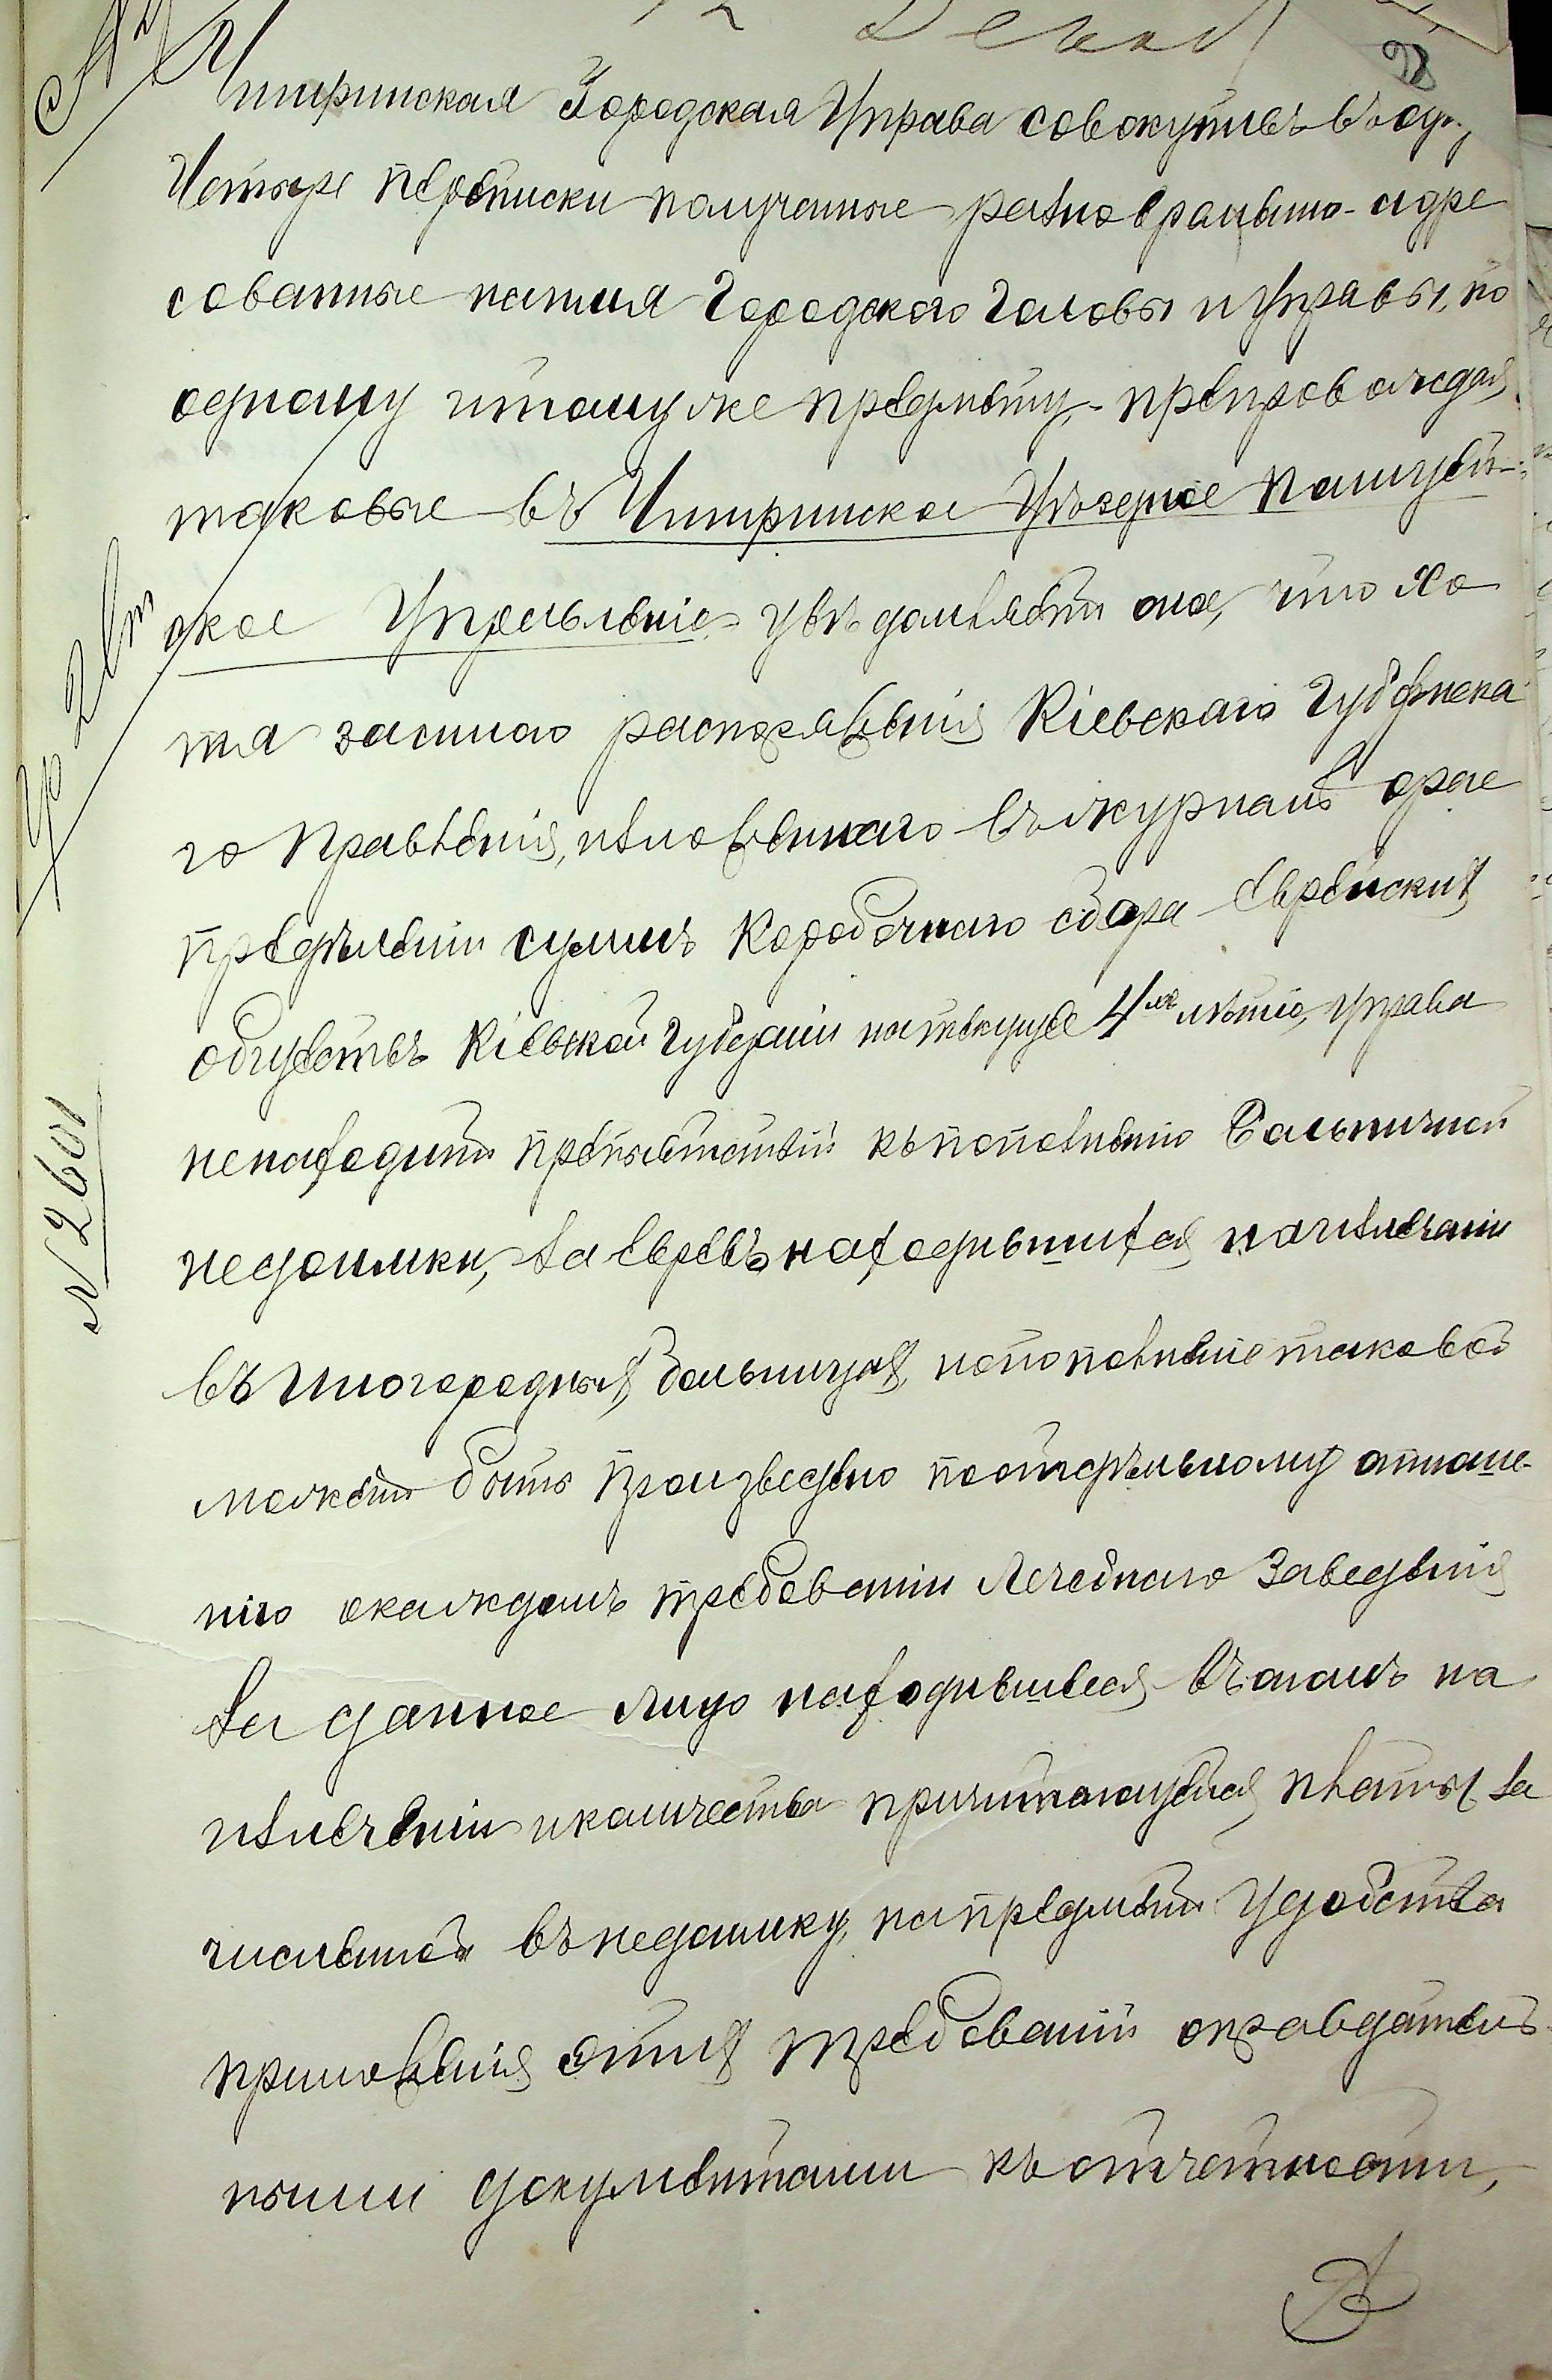 12 Декаб
98
Чигиринская Городская Управа совокупивъ въ одно,
четыре переписки полученные разновременно-адре
сованные на имя Городского Головы и Управы, по
одному и тому же предмету,- препровождая
таковые въ Чигиринское Уѣздное Полицей-
ское Управленіе, увѣдомляетъ оное, что хо
тя за силою распоряженія Кіевскаго Губернска
го Правленія, изложеннаго въ журналѣ о рас
предѣленіи суммъ Коробочнаго сбора Еврейскихъ
обществъ Кіевской Губерніи на текущее 4хъ лѣтіе, Управа
ненаходитъ препятствій къ пополненію Больничной
недоимки, за Евреевъ находившихся на излеченіи
въ иногородныхъ больницахъ, но пополненіе таковой
можетъ быть произведено по отдѣльному отноше-
нію о каждомъ требованіи Лечебнаго Заведенія
за данное лицо находившееся въ ономъ на
излеченіи и количества причитающейся платы за
численной въ недоимку, на предметъ удобства
приложенія этихъ требованій оправдатель-
ными документами къ отчетности,
№ 2601